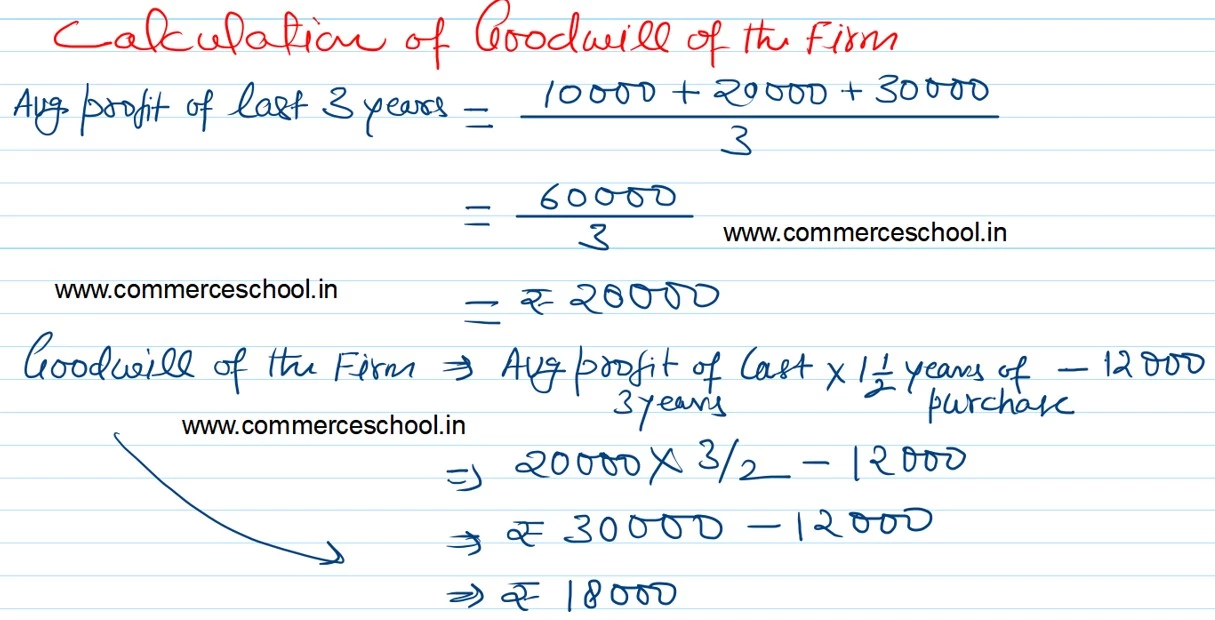 Calculation of Goodwill of the Firm
Avg. profit of last 3 years = 10000 + 20000 + 30000
3
= 60000
3
www.commerceschool.in
www.commerceschool.in
= ₹ 20000
Goodwill of the Firm ⇒ Avg profit of last × 1 1/2 years of – 12000
3 years purchase
www.commerceschool.in
⇒ 20000 × 3/2 – 12000
⇒ ₹ 30000 – 12000
⇒ ₹ 18000